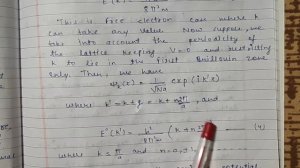 8π²m
This is free electron case where k
can take any value. Now suppose, we
take into account the periodicity of
the lattice keeping V=0 and restricting
k to lie in the first Brillouin zone
only. Then, we have
(x) = 1/√Na exp (ik'x)
where k' = k + = k + n2π/a, and
E°(k') = (k + n (4)
where k ≤ π/a and n = 0, ±1,
potential